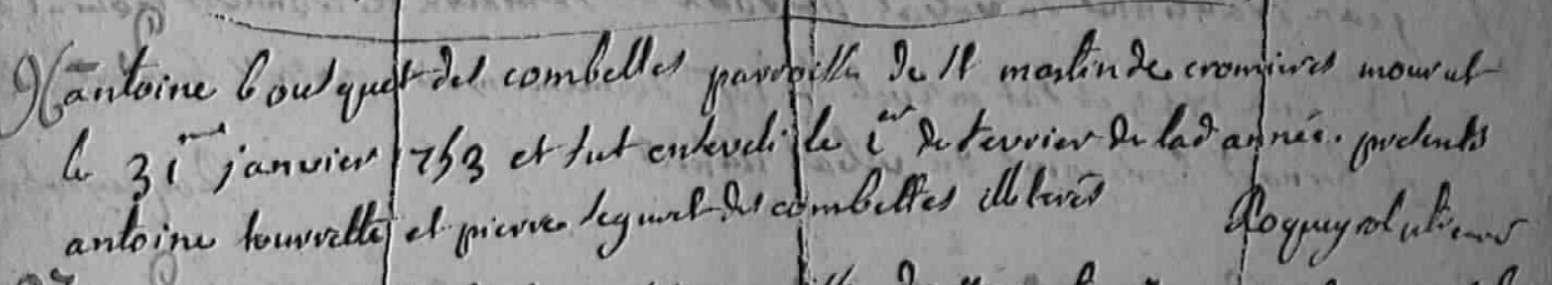 antoine bousquet des combelles parroisse de st martin de cromieres mourut
le 31me janvier 1753 et fut enseveli le ier de fevrier de lad année. presents
antoine tourrette et pierre seguret des combelles illiterés Roqueyrol